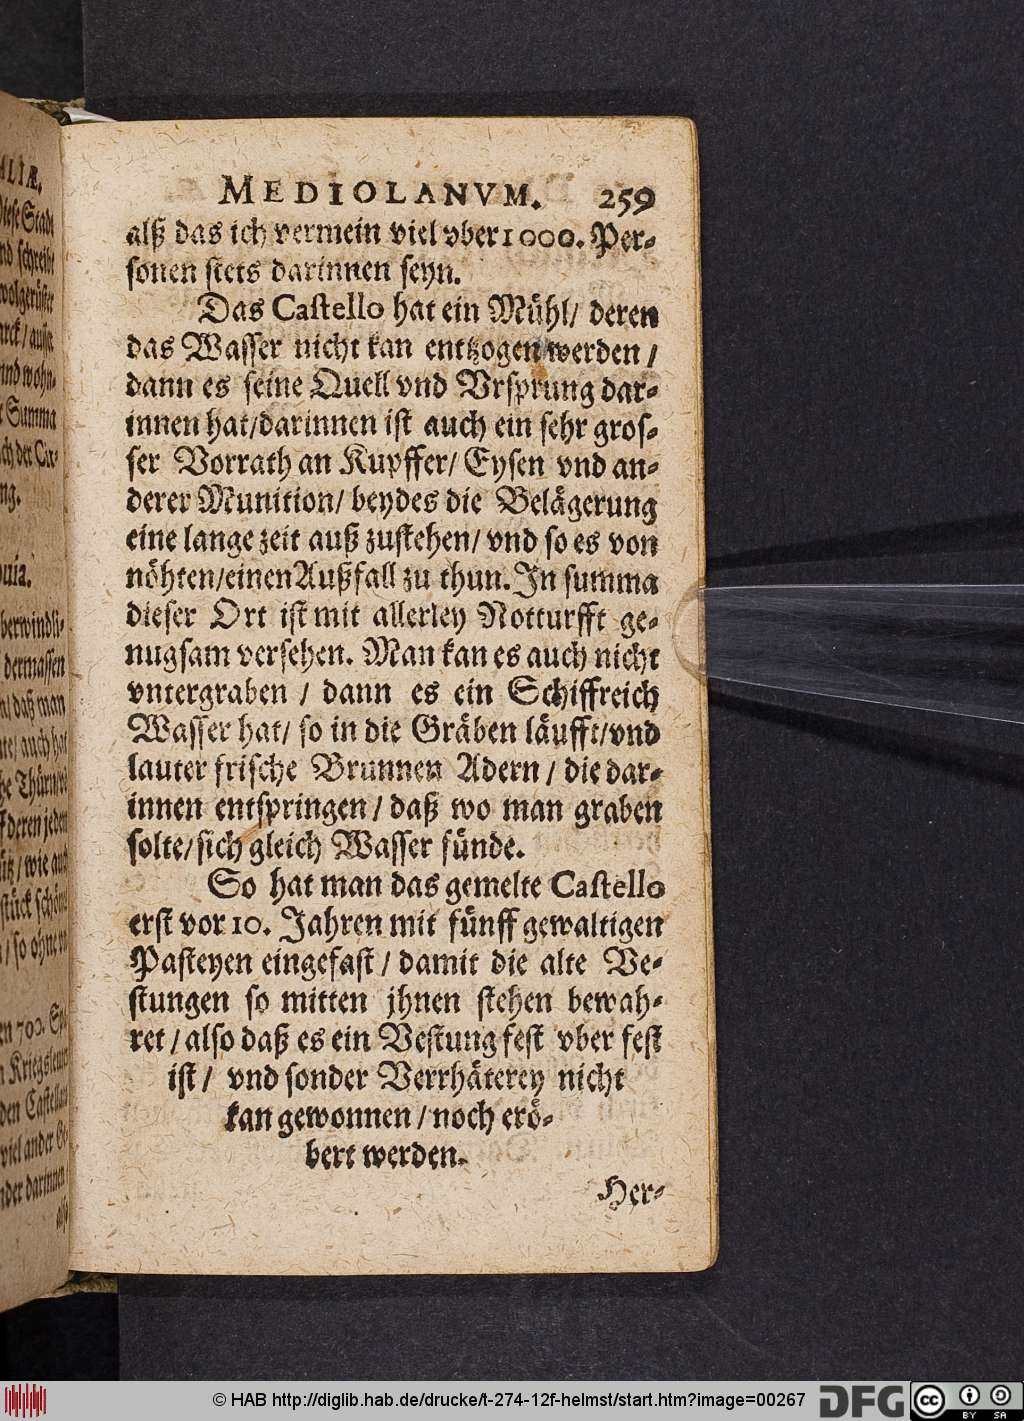 MEDIOLANVM. 259
alß das ich vermein viel vber 1000. Per-
sonen stets darinnen seyn.
Das Castello hat ein Mühl/ deren
das Wasser nicht kan entzogen werden /
dann es seine Quell vnd Vrsprung dar-
innen hat/darinnen ist auch ein sehr gros-
ser Vorrath an Kupffer/ Eysen vnd an-
derer Munition/ beydes die Belägerung
eine lange zeit auß zustehen/ vnd so es von
nöhten/einen Außfall zu thun. In summa
dieser Ort ist mit allerley Notturfft ge-
nugsam versehen. Man kan es auch nicht
vntergraben / dann es ein Schiffreich
Wasser hat/ so in die Gräben läufft/vnd
lauter frische Brunnen Adern / die dar-
innen entspringen / daß wo man graben
solte/sich gleich Wasser fünde.
So hat man das gemelte Castello
erst vor 10. Jahren mit fünff gewaltigen
Pasteyen eingefast / damit die alte Ve-
stungen so mitten jhnen stehen bewah-
ret / also daß es ein Vestung fest vber fest
ist / vnd sonder Verrhäterey nicht
kan gewonnen / noch erö-
bert werden.
Her-
ALIÆ.
Diese Stadt
nd schreibt
wolgerüster
arck / ausse
und wohn-
Summa
ch der Car-
ng.
uia.
berwindli-
dermassen
daß man
auch hat
deren jeden
wie auch
stück schöne
so ohne
en 700. Sp
Kriegsleute
den Castellan
viel ander
nder darinnen
alß
© HAB http://diglib.hab.de/drucke/t-274-12f-helmst/start.htm?image=00267
DFG
cc
BY SA